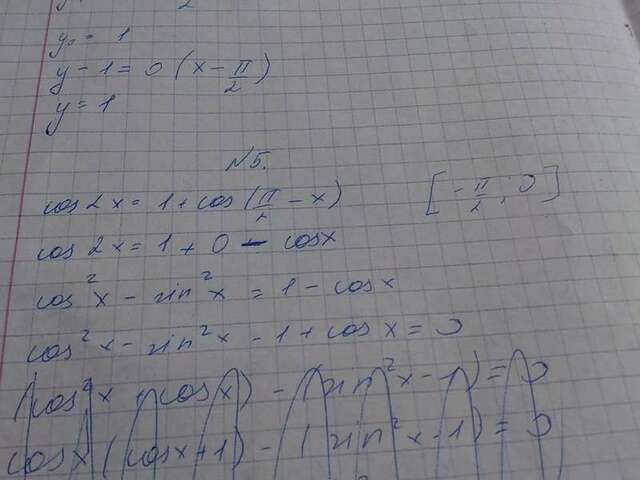 y₀ = 1
y - 1 = 0 (x - π/2)
y = 1
№5.
cos 2x = 1 + cos (π/2 - x) [-π/2; 0]
cos 2x = 1 + 0 - cosx
cos²x - sin²x = 1 - cosx
cos²x - sin²x - 1 + cos x = 0
(cos²x + cosx) - (sin²x - 1) = 0
cosx (cosx + 1) - (sin²x - 1) = 0